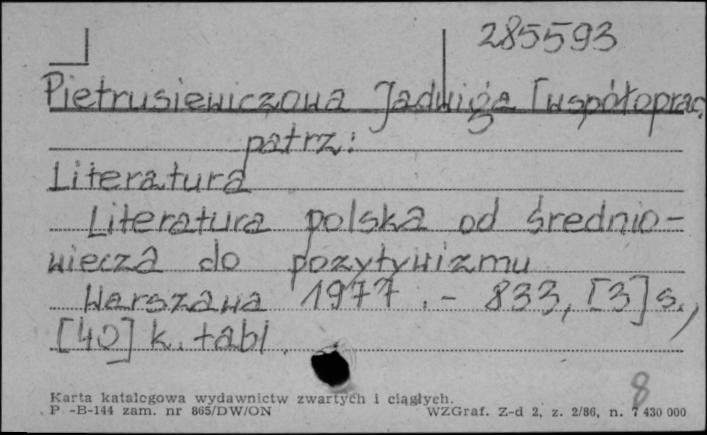 285593
Pietrusiewiczowa Jadwiga [współoprac.
patrz:
Literatura
Literatura polska od średnio-
wiecza do pozytywizmu
Warszawa 1977. - 833, [3] s.,
[40] k. tabl.
8
Karta katalogowa wydawnictw zwartych i ciągłych.
P -B-144 zam. nr 865/DW/ON WZGraf. Z-d 2, z. 2/86, n. 7 430 000